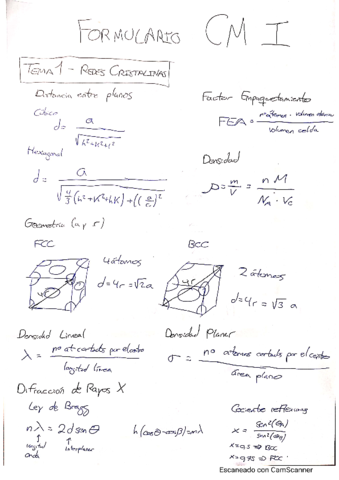 FORMULARIO CM I
TEMA 1 - REDES CRISTALINAS
Distancia entre planos
Cúbico
d = a / √(h²+k²+l²)
Hexagonal
d = a / √(4/3 (h²+k²+hk) + l² (a/c)²)
Factor Empaquetamiento
FEA = nº átomos · volumen átomo / volumen celda
Densidad
ρ = m/V = n M / N_A · V_c
Geometría (a y r)
FCC
4 átomos
d = 4r = √2 a
BCC
2 átomos
d = 4r = √3 a
Densidad Lineal
λ = no at. cortados por el centro / longitud línea
Densidad Planar
σ = no átomos cortados por el centro / área plano
Difracción de Rayos X
Ley de Bragg
nλ = 2d sen θ
longitud onda
interplanar
h(cosθ-cosβ)=mλ
Cociente reflexiones
x = sen²(θ₁) / sen²(θ₂)
x=0,5 ⇒ BCC
x=0,75 ⇒ FCC
Escaneado con CamScanner